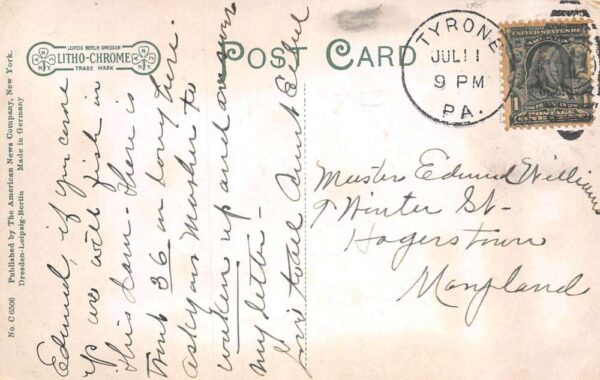 LEIPZIG BERLIN DRESDEN
LITHO-CHROME
TRADE MARK
POST CARD
TYRONE
JUL 11
9 PM
PA.
No. C 6506 Published by The American News Company, New York.
Dresden-Leipzig-Berlin Made in Germany
Edmund, if you came
up we will fish in
this dam - There is
trout 36 in long here.
ask your Mother to
waken up and answer
my letter -
love to all Aunt Ethel
Master Edmund Williams
Winter St -
Hagerstown
Maryland